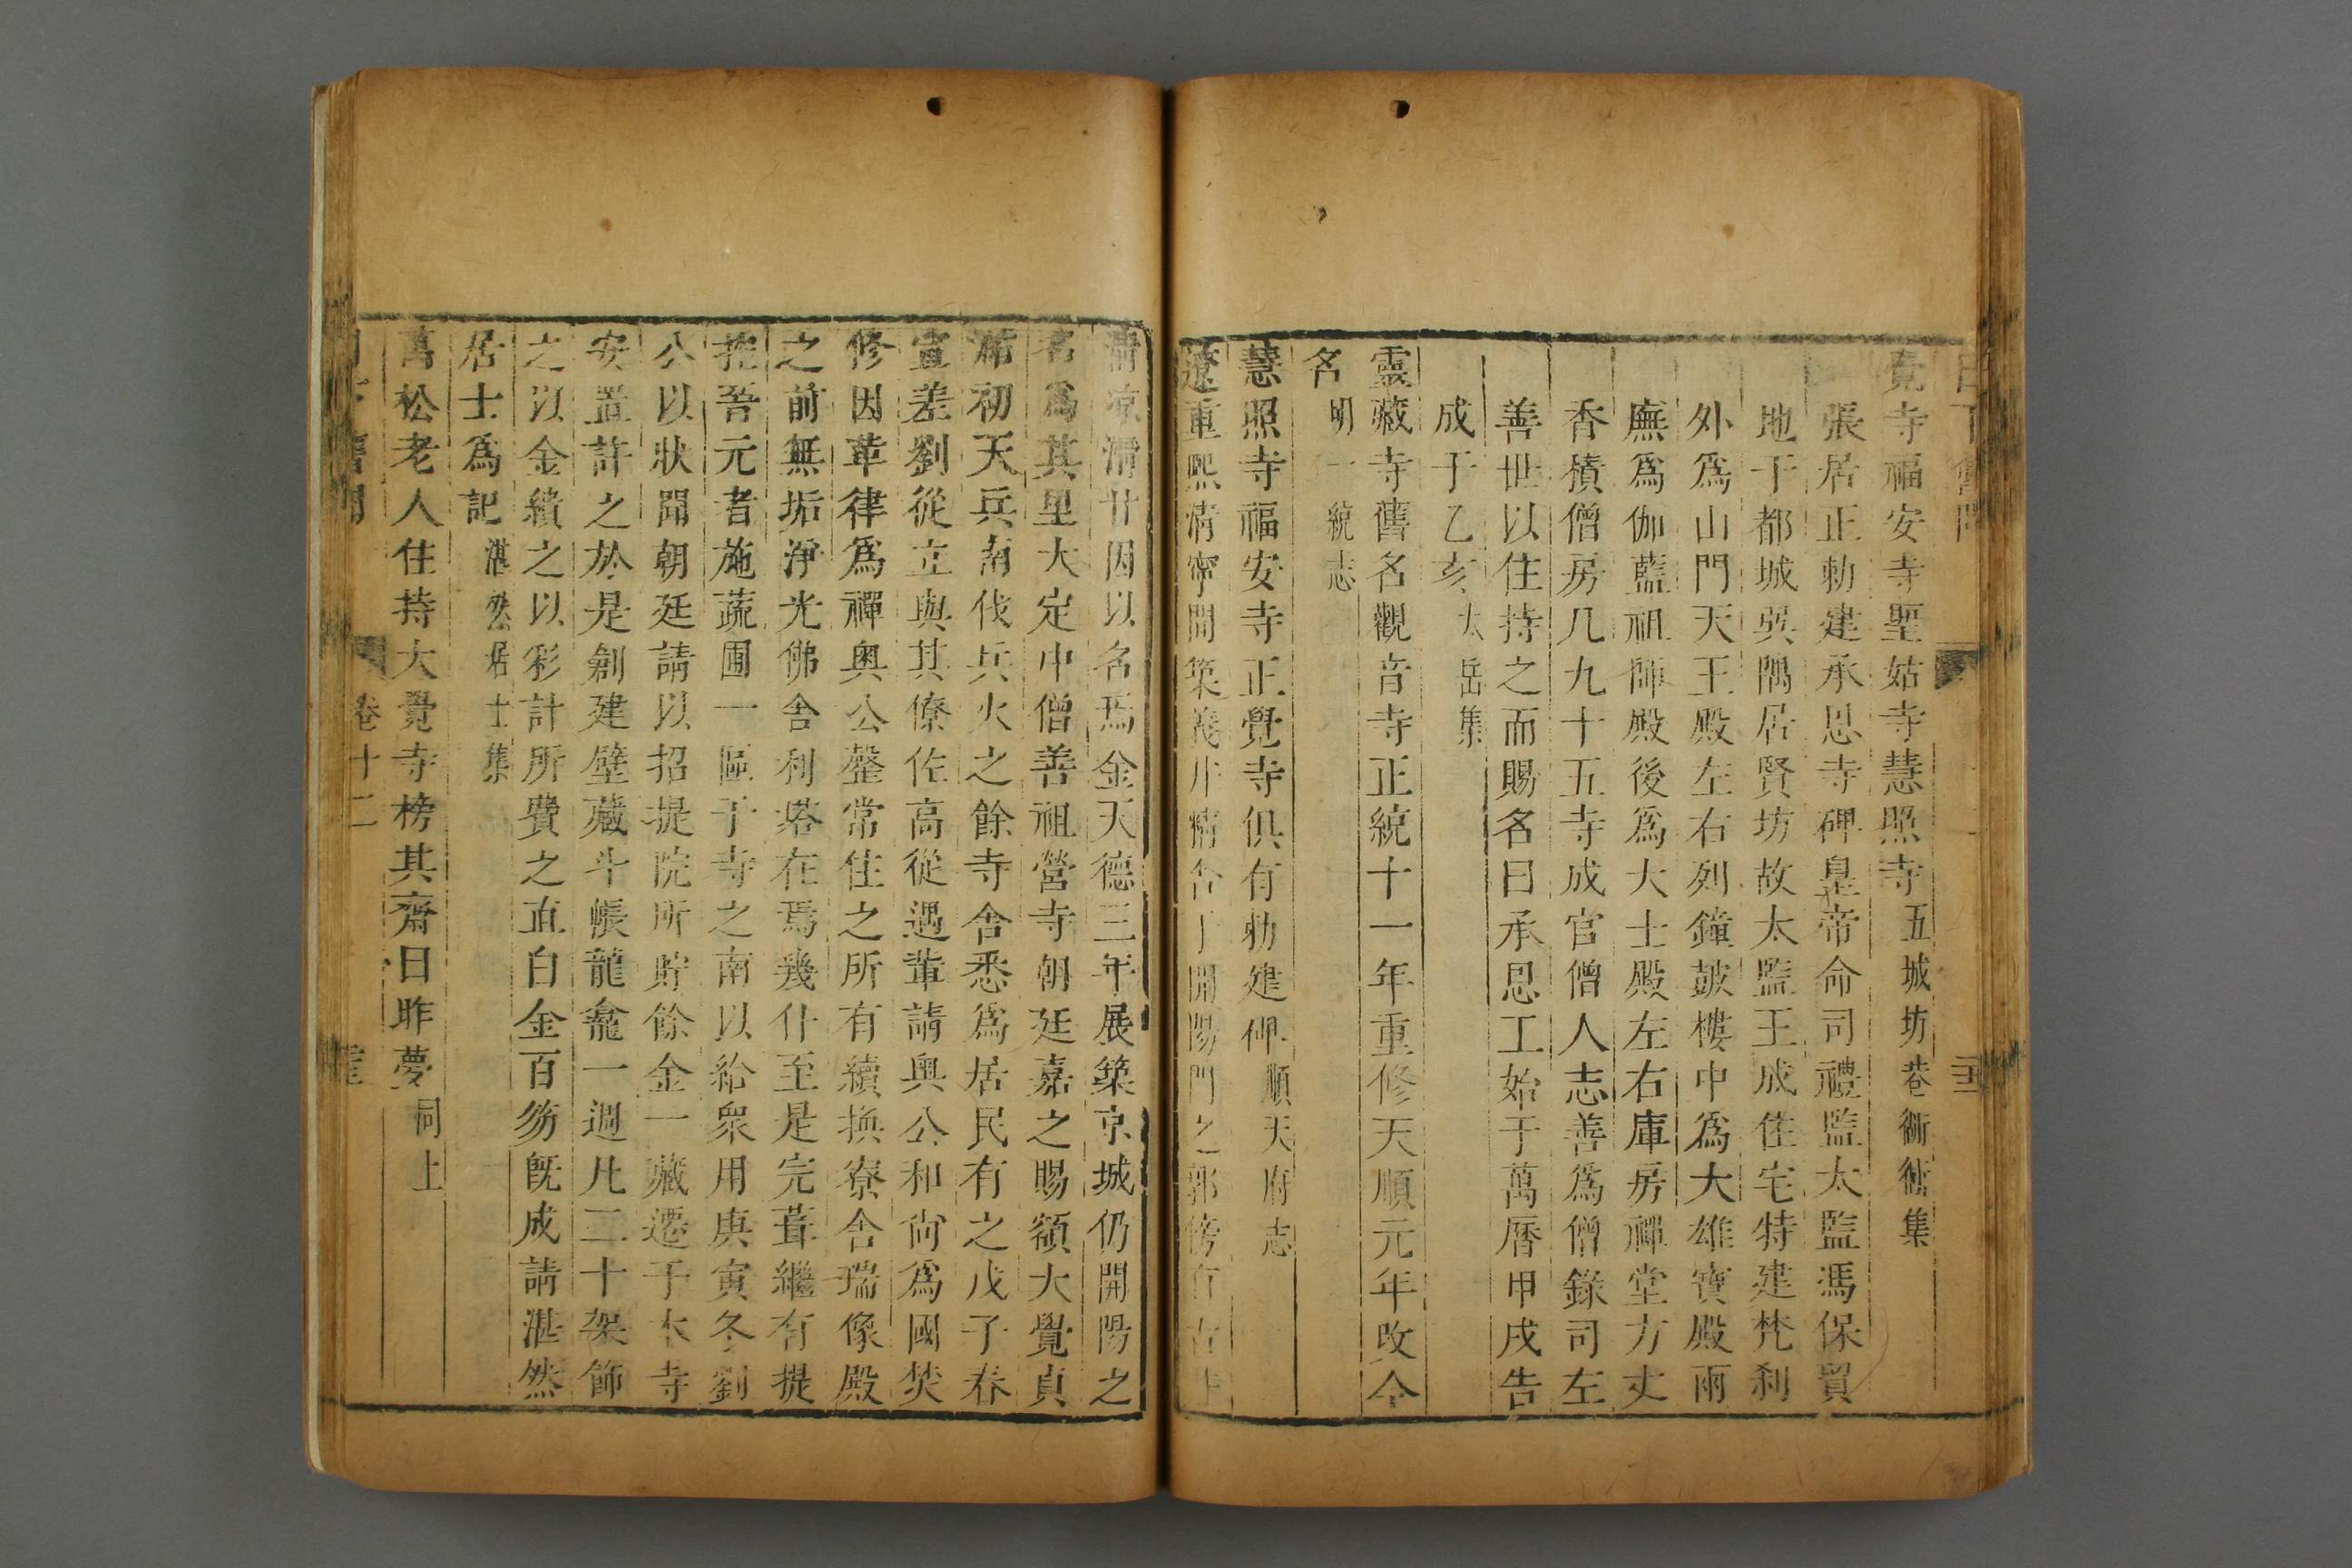 覺寺福安寺聖姑寺慧照寺五城坊巷衚衕集
張居正勅建承恩寺碑皇帝命司禮監太監馮保貿
地于都城巽隅居賢坊故太監王成住宅特建梵刹
外爲山門天王殿左右列鐘鼓樓中爲大雄寶殿兩
廡爲伽藍祖師殿後爲大士殿左右庫房禪堂方丈
香積僧房凡九十五寺成官僧人志善爲僧錄司左
善世以住持之而賜名曰承恩工始于萬曆甲戌告
成于乙亥太岳集
靈藏寺舊名觀音寺正統十一年重修天順元年改今
名明一統志
慧照寺福安寺正覺寺俱有勅建碑順天府志
遼重熙清寧間築義井精舍于開陽門之郭傍有古井
清涼滑甘因以名焉金天德三年展築京城仍開陽之
名爲其里大定中僧善祖營寺朝廷嘉之賜額大覺貞
祐初天兵南伐兵火之餘寺舍悉爲居民有之戊子春
宣差劉從立與其僚佐高從遇輩請奥公和尚爲國焚
修因革律爲禪奥公罄常住之所有續換寮舍瑞像殿
之前無垢淨光佛舍利塔在焉幾什至是完葺繼有提
控吾元者施蔬圃一區于寺之南以給衆用庚寅冬劉
公以狀聞朝廷請以招提院所貯餘金一藏遷于本寺
安置許之於是創建壁藏斗帳龍龕一週凡二十架飾
之以金繢之以彩計所費之直白金百笏旣成請湛然
居士爲記湛然居士集
萬松老人住持大覺寺榜其齋曰昨夢同上
卷十二